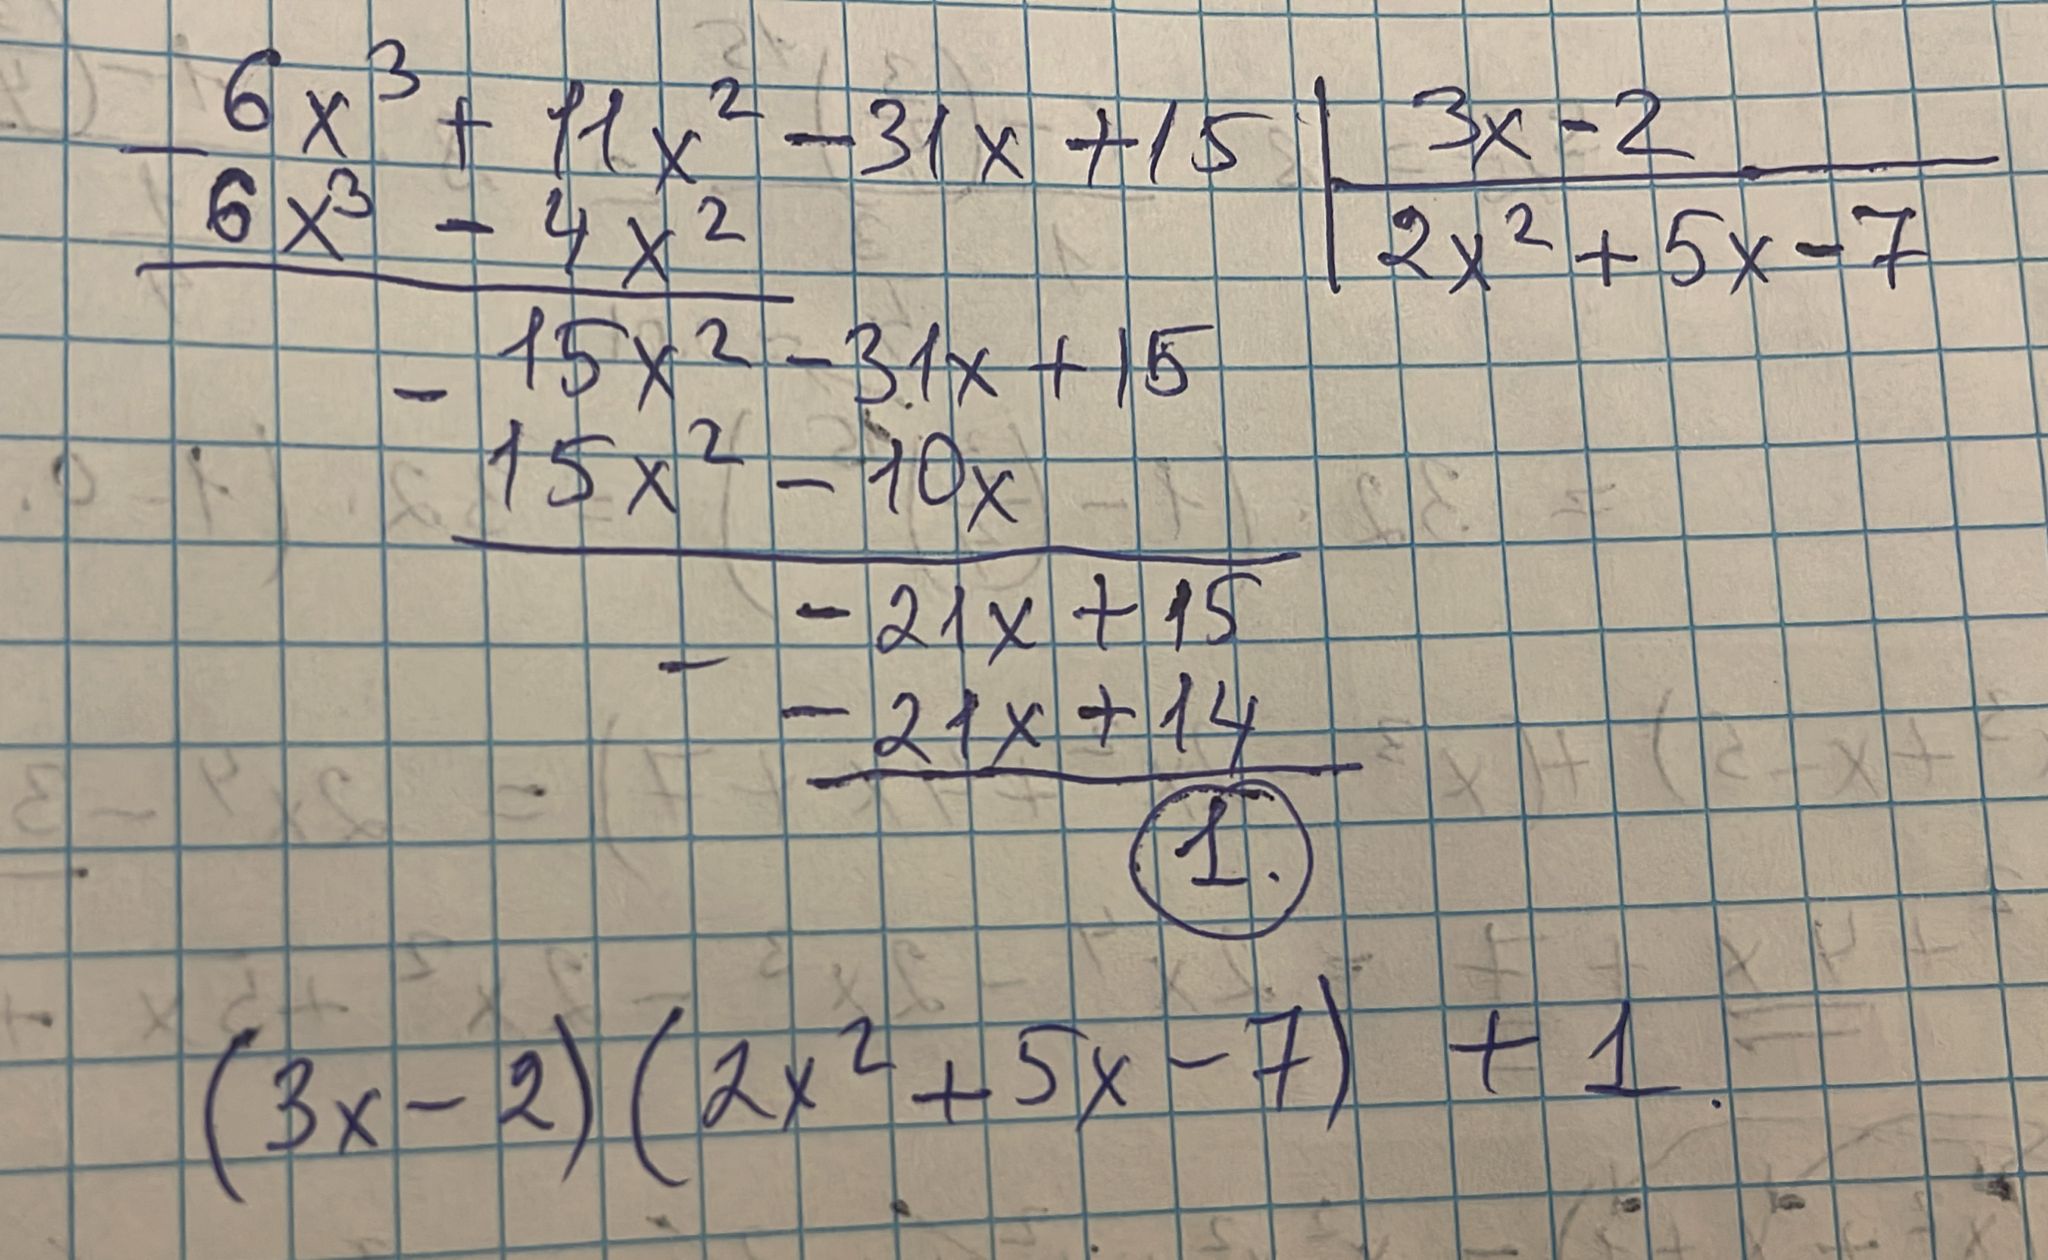 6x³ + 11x² - 31x + 15 | 3x - 2
- 6x³ - 4x² | 2x² + 5x - 7
15x² - 31x + 15
-
15x² - 10x
- 21x + 15
-
- 21x + 14
1.
(3x - 2)(2x² + 5x - 7) + 1.